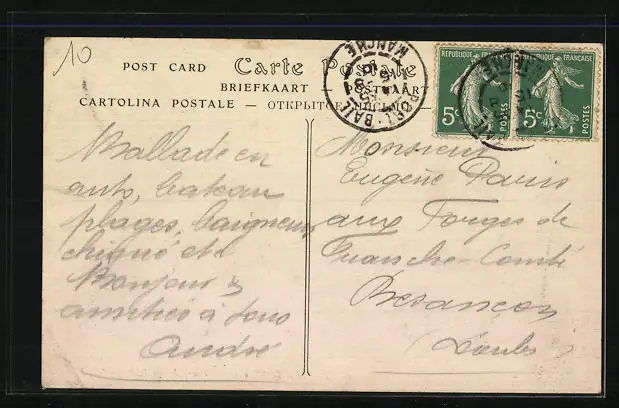 10
POST CARD Carte Postale
BRIEFKAART
CARTOLINA POSTALE
PORT-BAIL
MANCHE
REPUBLIQUE FRANÇAISE
5c
POSTES
FRANÇAISE
5c
POSTES
Ballade en
auto, bateau
plages, baigneurs
chiqué etc
Bonjour &
amitiés à tous
André
Monsieur
Eugène Paris
aux Forges de
Franche-Comté
Besançon
Doubs